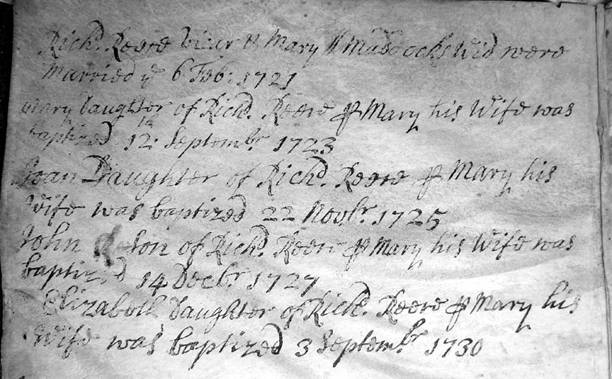 Rich.d Reere Vicar & Mary Murdocks Wid were
Married ye 6 Feb: 1721
Mary Daughter of Rich.d Reere & Mary his Wife was
baptized 12 Septemb.r 1723
Joan Daughter of Rich.d Reere & Mary his
Wife was baptized 22 Nov.r 1725
John Son of Rich.d Reere & Mary his Wife was
baptized 14 Dec.r 1727
Elizabeth Daughter of Rich.d Reere & Mary his
Wife was baptized 3 Septemb.r 1730